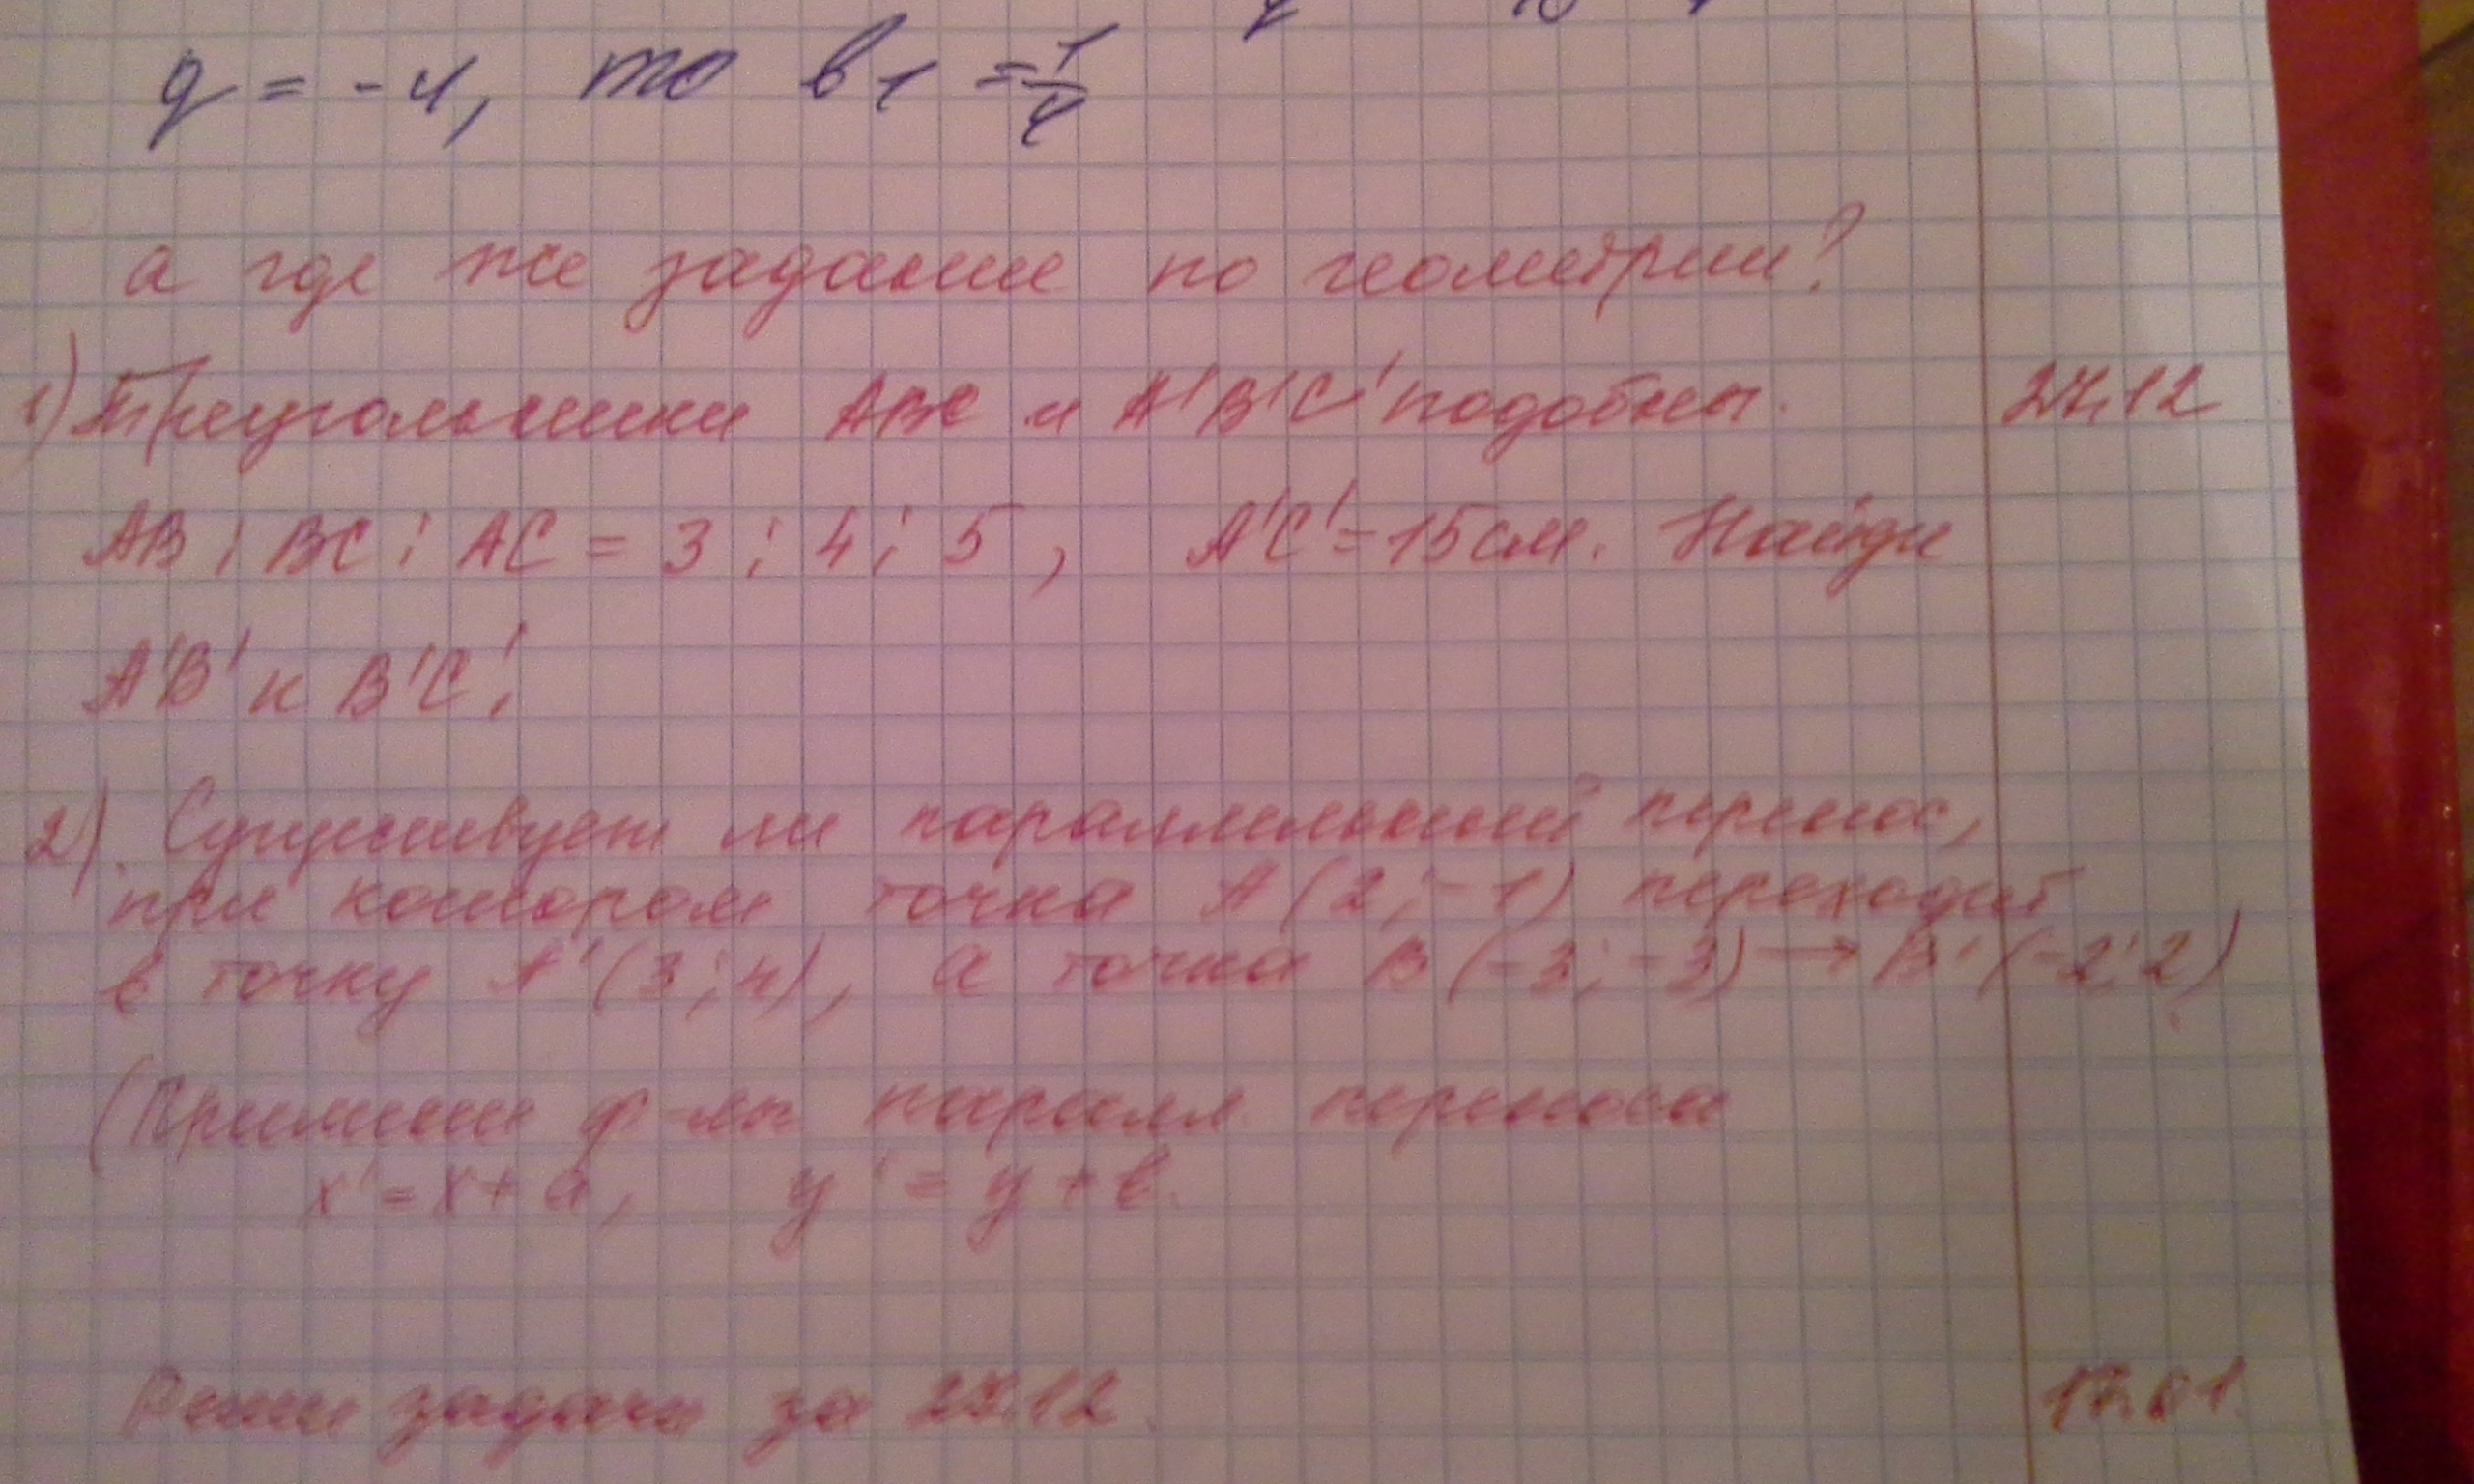 q = -4, то в1 = 1/4
а где же задание по геометрии?
1) Треугольники АВС и А'В'С' подобны. 27.12
АВ : ВС : АС = 3 : 4 : 5, А'С' = 15 см. Найди
А'В' и В'С'.
2). Существует ли параллельный перенос,
при котором точка А (2; -1) переходит
в точку А' (3; 4), а точка В (-3; -3) → В' (-2; 2)
(Примени ф-лы паралл. переноса
x' = x + a, y' = y + в.
Реши задачи за 27.12. 17.01.